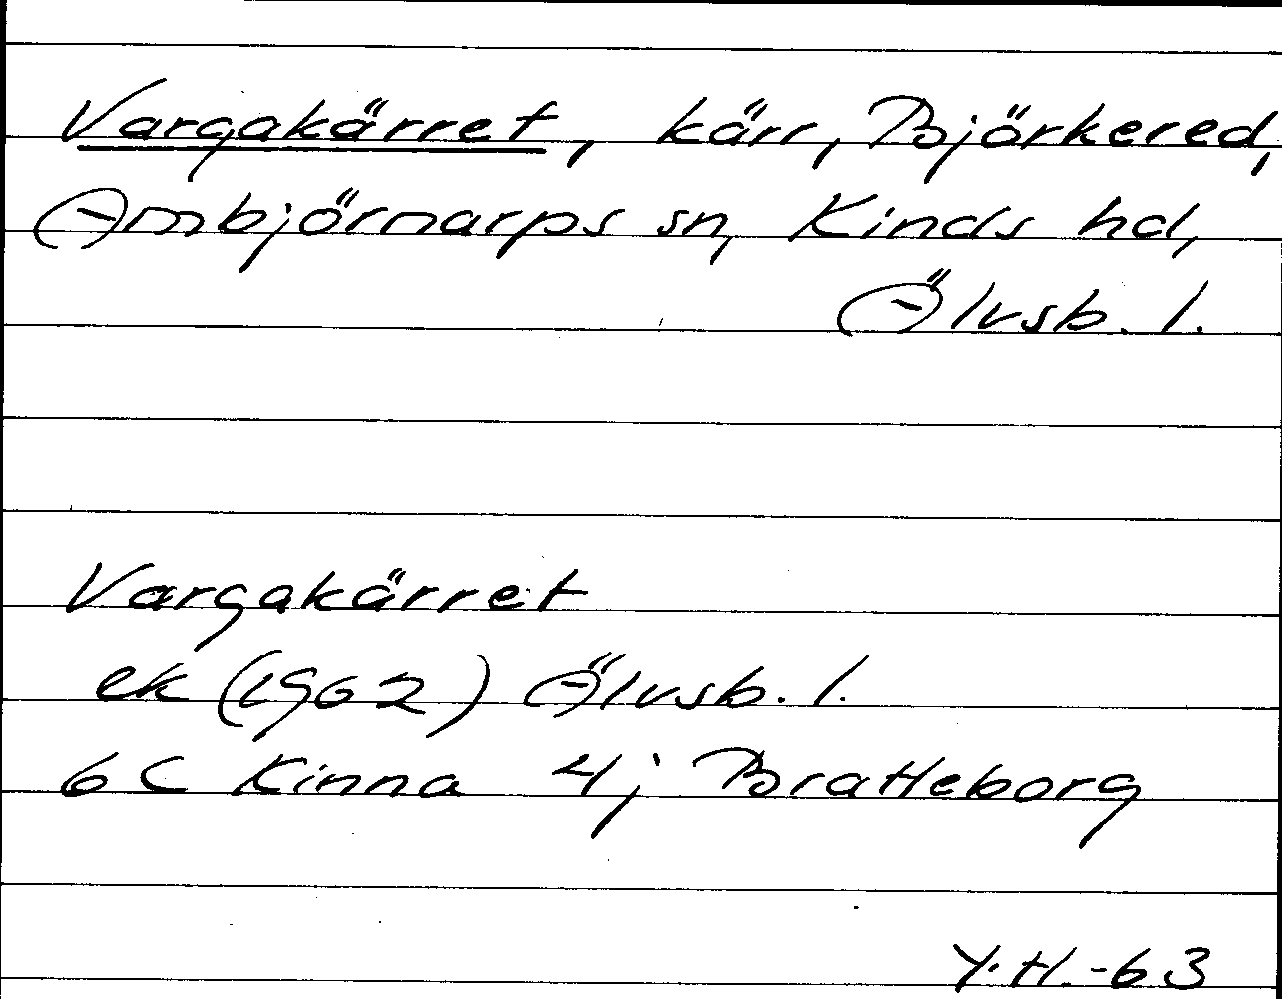 Vargakärret, kärr, Björkered,
Ambjörnarps sn, Kinds hd,
Älvsb. l.
Vargakärret
ek (1962) Älvsb. l.
6 C Kinna 4j Bratteborg
Y.H.-63